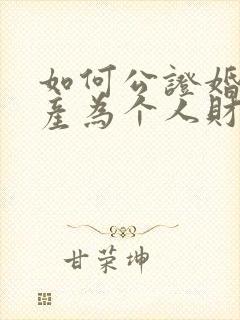 如何公證婚
產為个人財
甘荣坤